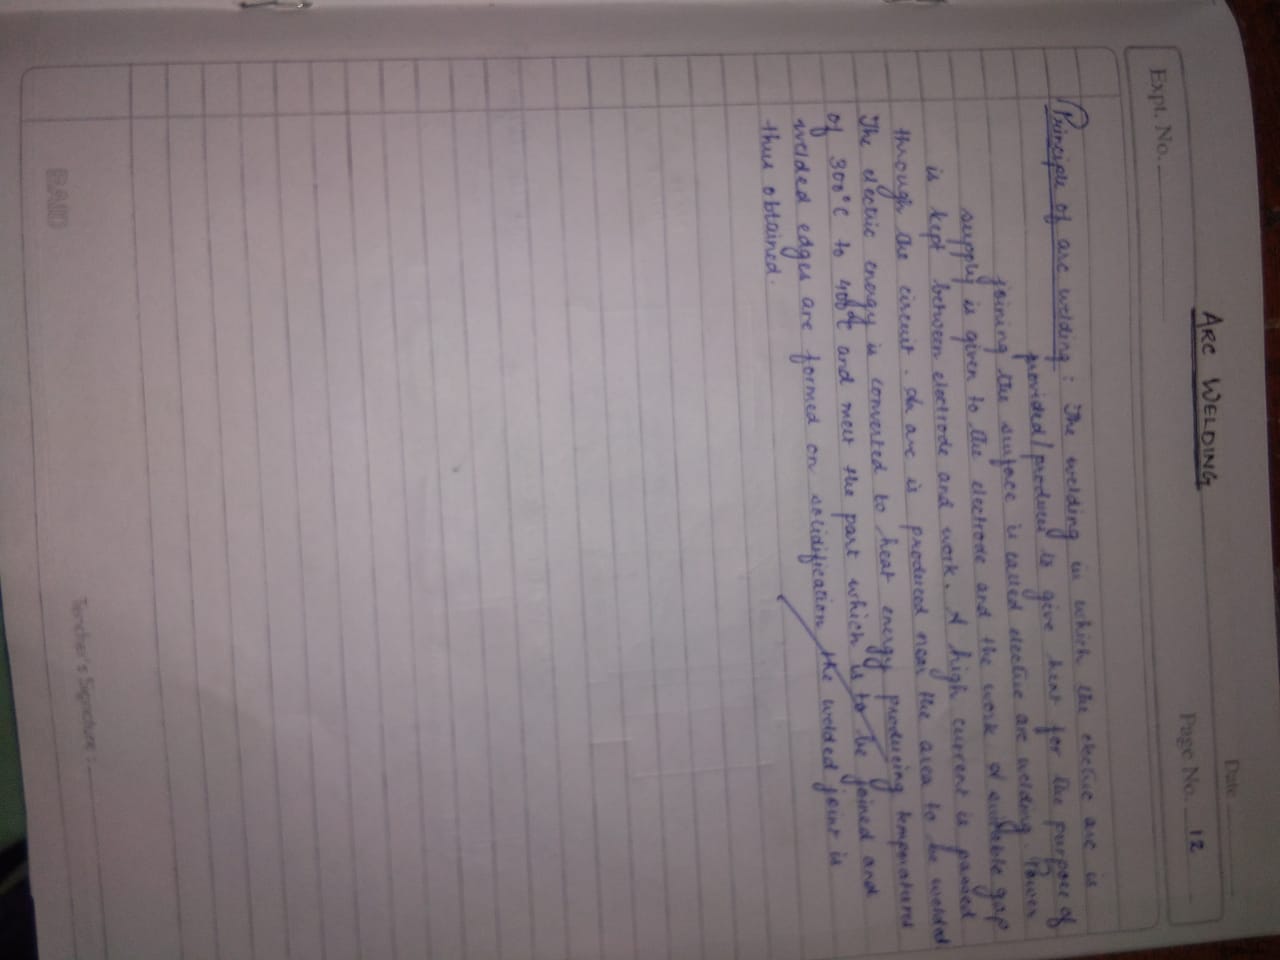 Date
ARC WELDING
Expt. No.
Page No. 12
Principle of arc welding : The welding in which the electric arc is
provided/produced is give heat for the purpose of
joining the surface is called electric arc welding. Power
supply is given to the electrode and the work. A suitable gap
is kept between electrode and work. A high current is passed
through the circuit. An arc is produced near the area to be welded
The electric energy is converted to heat energy producing temperatures
of 300°C to 400°C and melt the part which is to be joined and
welded edges are formed on solidification the welded joint is
thus obtained.
BAID
Teacher's Signature :